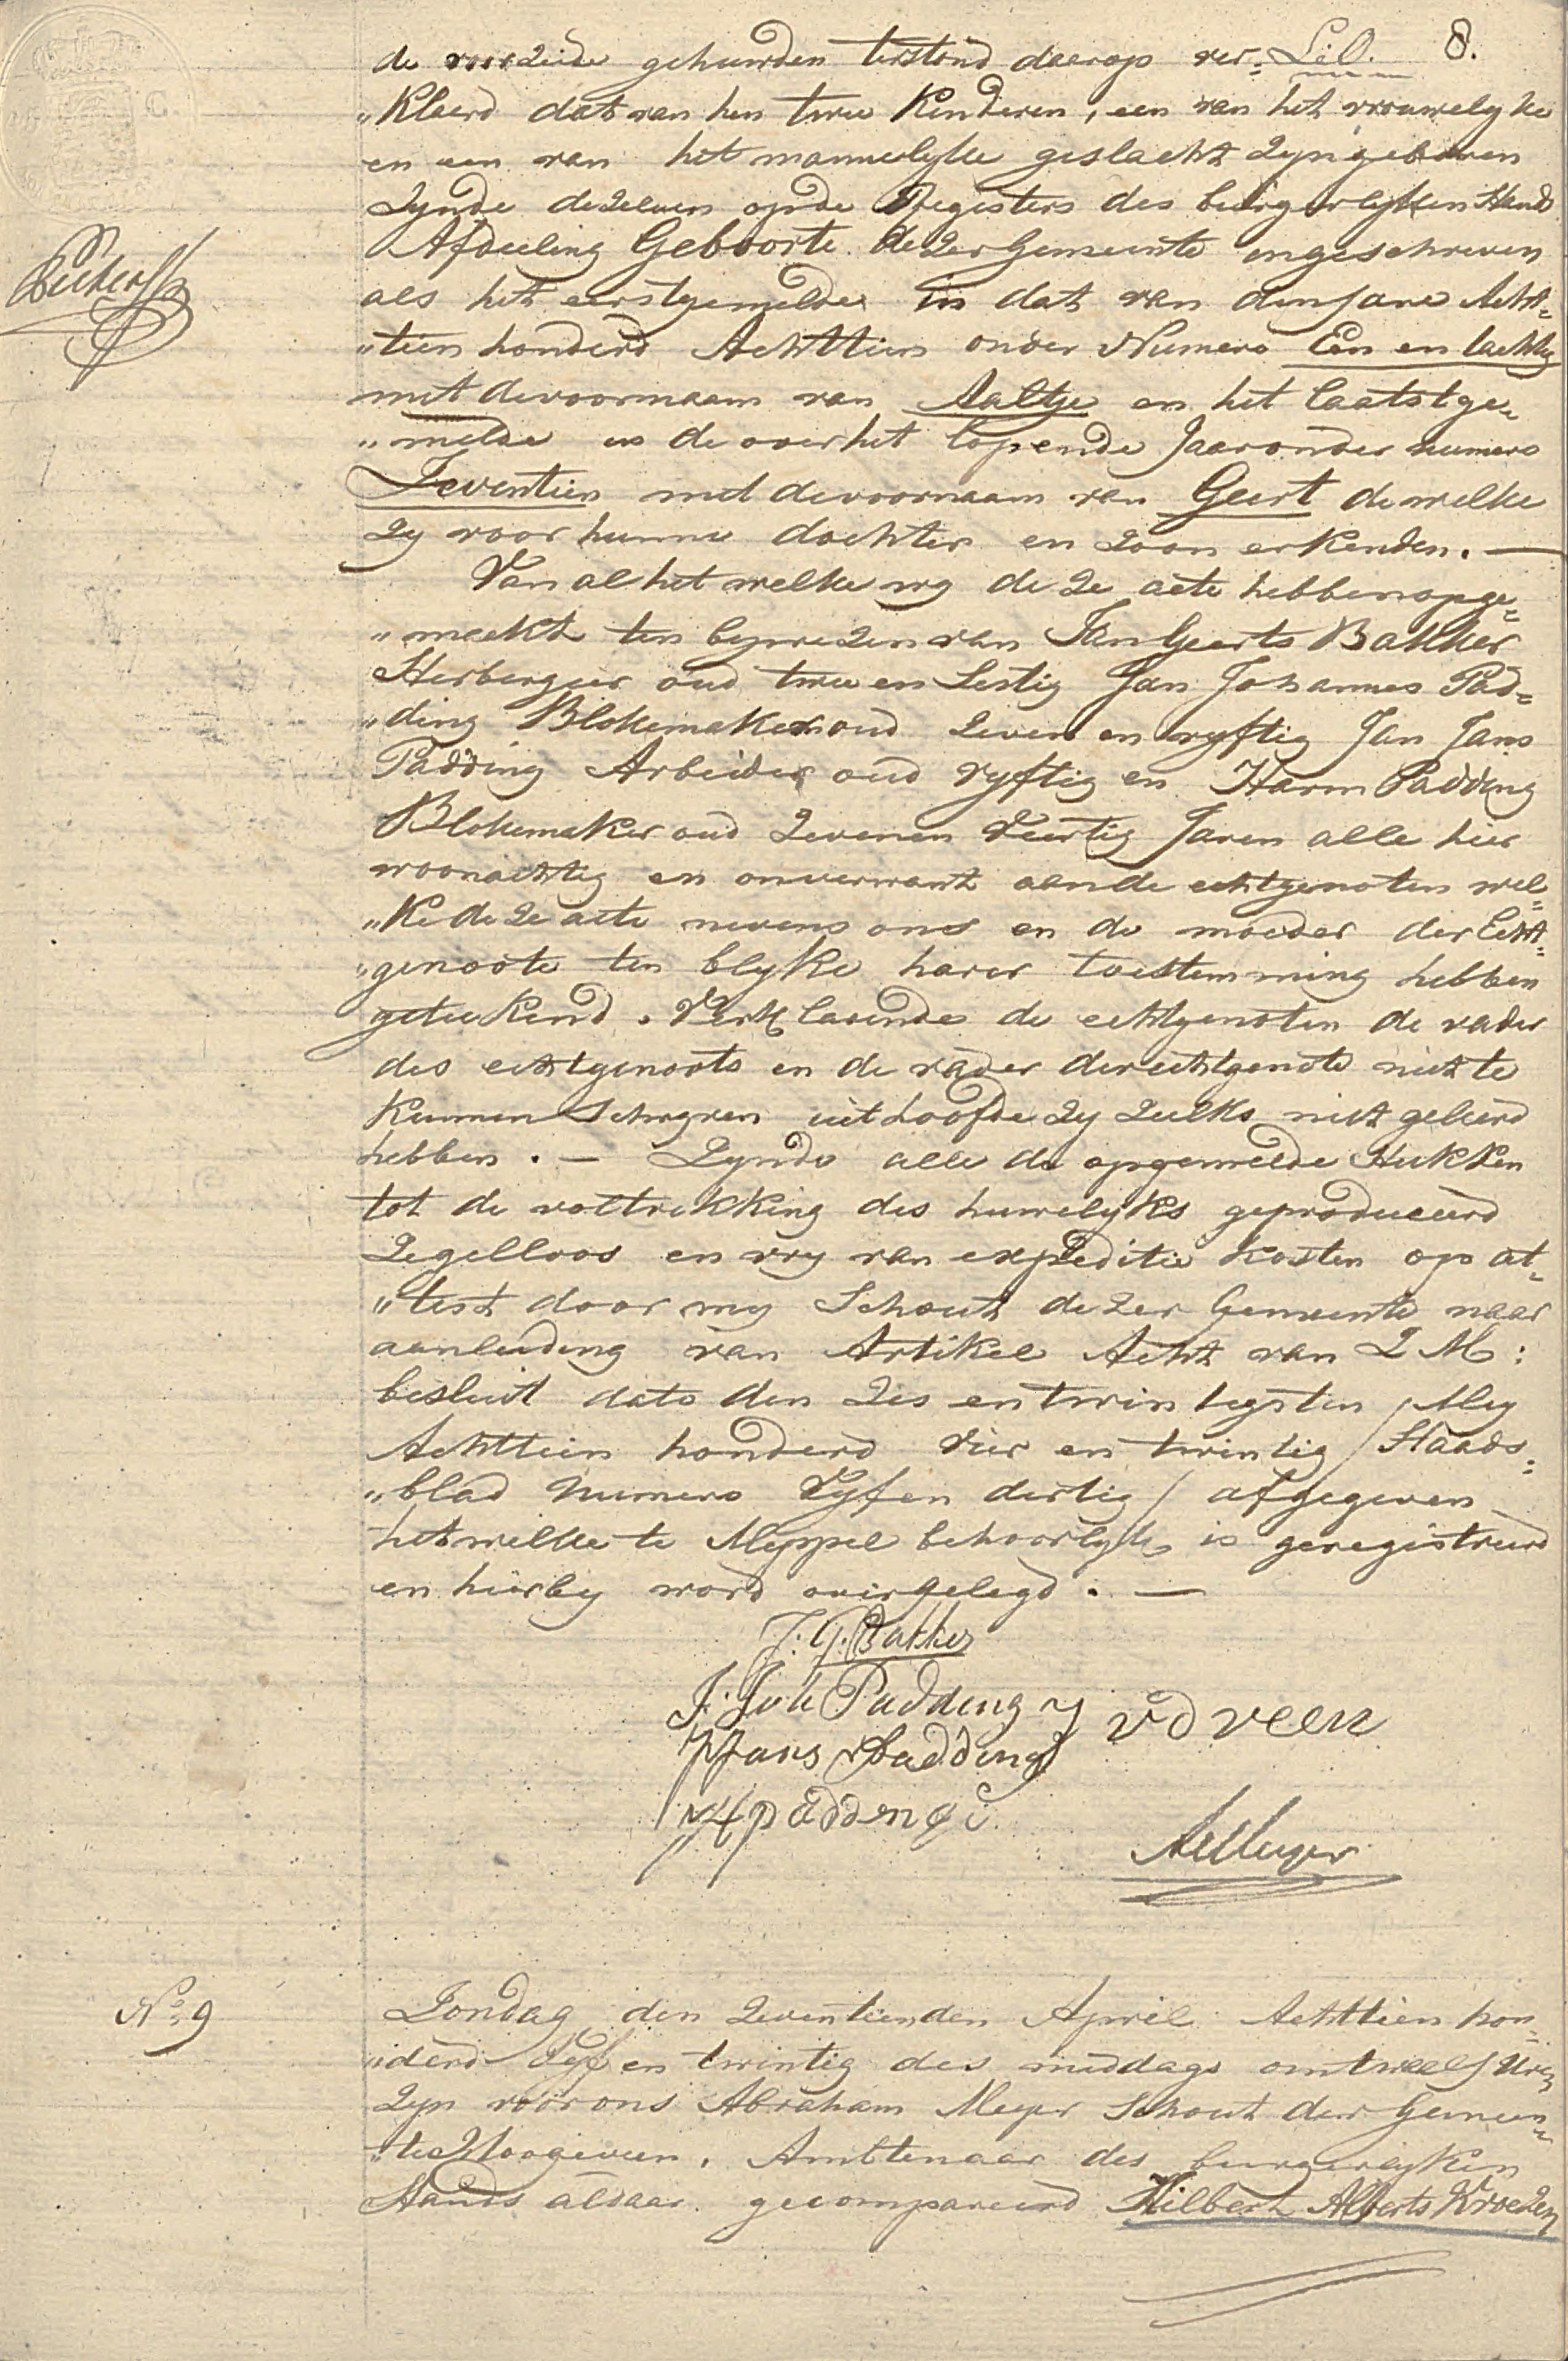 de voorzeide gehuwden terstond daarop ver= 8.
"klaerd dat van hen twee Kinderen, een van het vrouwelyke
en een van het mannelyke geslacht zyn geboren
Zynde dezelven op de Registers des burgerlyken Stand
Afdeeling Geboorte dezer Gemeente ingeschreven
als het eerstgemelde in dat van den Jare Acht=
"tien honderd Achttien onder Numero Een en tachtig
met de voornaam van Aaltje en het laatstge=
"melde in de over het lopende Jaar onder numero
Zeventien met de voornaam van Geert de welke
zy voor hunne dochter en zoon erkenden. —
Van al het welke wy deze acte hebben opge=
"maekt ten bywezen van Jan Geerts Bakker
Herbergier oud twee en Sestig Jan Johannes Pad=
"ding Blokemaker oud zeven en vyftig Jan Jans
Padding Arbeider oud vyftig en Harm Padding
Blokemaker oud zeven en veertig Jaren alle hier
woonachtig en onverwant aan de echtgenoten wel=
"ke deze acte nevens ons en de moeder der Echt=
"genoote ten blyke harer toestemming hebben
geteekend. Verklarende de echtgenoten de vader
des echtgenoots en de vader der echtgenote niet te
kunnen schryven uit hoofde zy zulks niet geleerd
hebben. — Zynde alle de opgemelde Stukken
tot de voltrekking des huwelyks geproduceerd
Zegelloos en vry van expeditie kosten op at=
"test door my Schout dezer Gemeente naar
aanleiding van Artikel Acht van Z M:
besluit dato den zes en twintigsten Mey
Achttien honderd vier en twintig / Staads=
"blad Numero Vyf en dertig / afgegeven
het welke te Meppel behoorlyk is geregistreerd
en hierby word overgelegd. —
J: G: Bakker
J: Joh Padding J v d veen
J Jans Padding
H padding
AMeyer
No. 9
Zondag den zeventienden April Achttien hon=
"derd Vyf en twintig des middags om twaelf Ure
zyn voor ons Abraham Meyer Schout der Gemeen=
"te Hoogeveen, Ambtenaar des burgerlyken
Stands aldaar gecompareerd Hilbert Alberts Kroezen